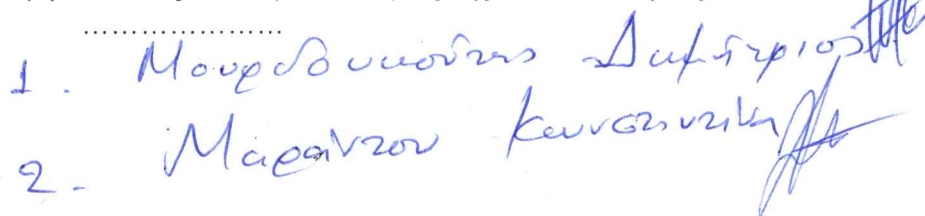 ....................
1. Μουρδουκούτας Δημήτριος
2. Μαράντου Κωνσταντίνα